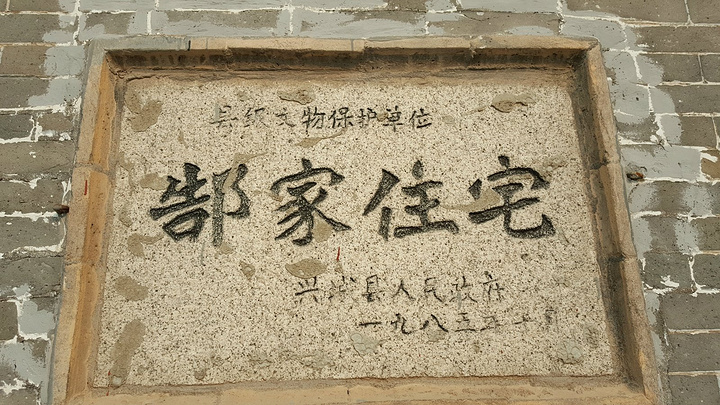 县级文物保护单位
郜家住宅
兴城县人民政府
一九八三年十月